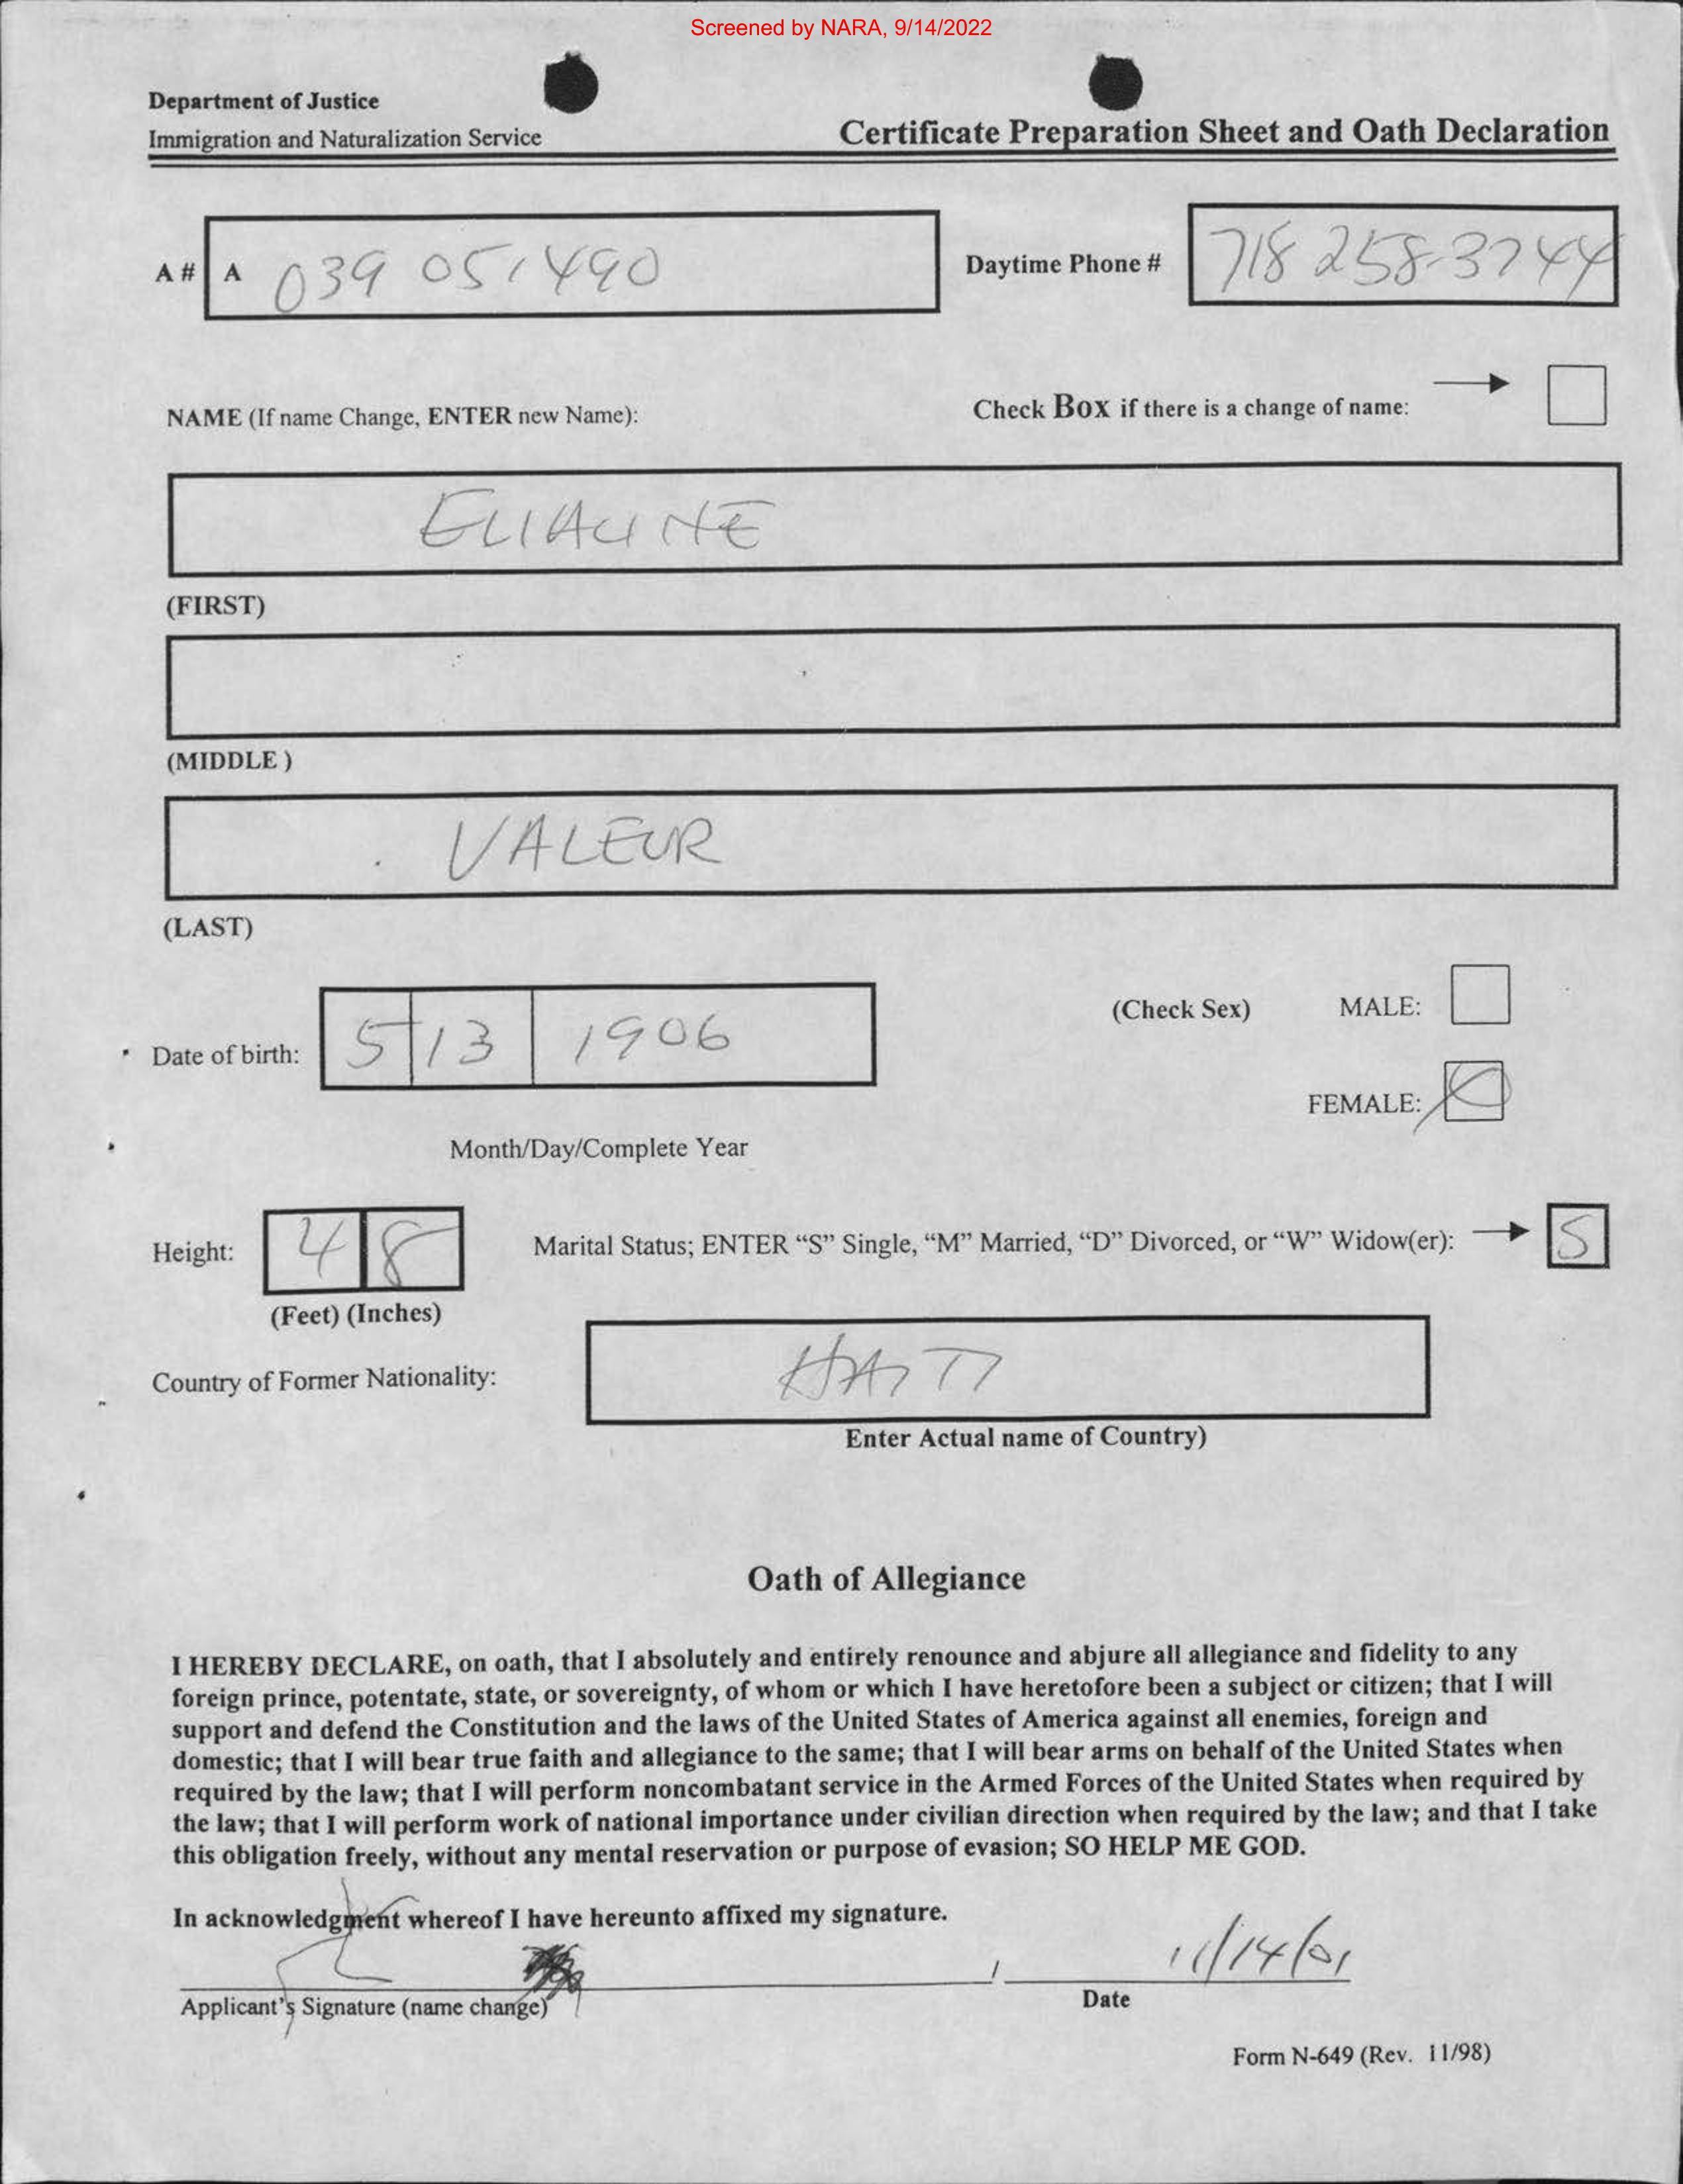 Screened by NARA, 9/14/2022
Department of Justice
Immigration and Naturalization Service
Certificate Preparation Sheet and Oath Declaration
A # A 039 051490
Daytime Phone # 718 258-3744
NAME (If name Change, ENTER new Name):
Check Box if there is a change of name:
(FIRST)
(MIDDLE )
VALEUR
(LAST)
Date of birth: 5 13 1906
Month/Day/Complete Year
(Check Sex) MALE:
FEMALE:
Height: 4 8
(Feet) (Inches)
Marital Status; ENTER “S” Single, “M” Married, “D” Divorced, or “W” Widow(er): S
Country of Former Nationality: HAITI
Enter Actual name of Country)
Oath of Allegiance
I HEREBY DECLARE, on oath, that I absolutely and entirely renounce and abjure all allegiance and fidelity to any
foreign prince, potentate, state, or sovereignty, of whom or which I have heretofore been a subject or citizen; that I will
support and defend the Constitution and the laws of the United States of America against all enemies, foreign and
domestic; that I will bear true faith and allegiance to the same; that I will bear arms on behalf of the United States when
required by the law; that I will perform noncombatant service in the Armed Forces of the United States when required by
the law; that I will perform work of national importance under civilian direction when required by the law; and that I take
this obligation freely, without any mental reservation or purpose of evasion; SO HELP ME GOD.
In acknowledgment whereof I have hereunto affixed my signature.
11/14/01
Applicant's Signature (name change)
Date
Form N-649 (Rev. 11/98)